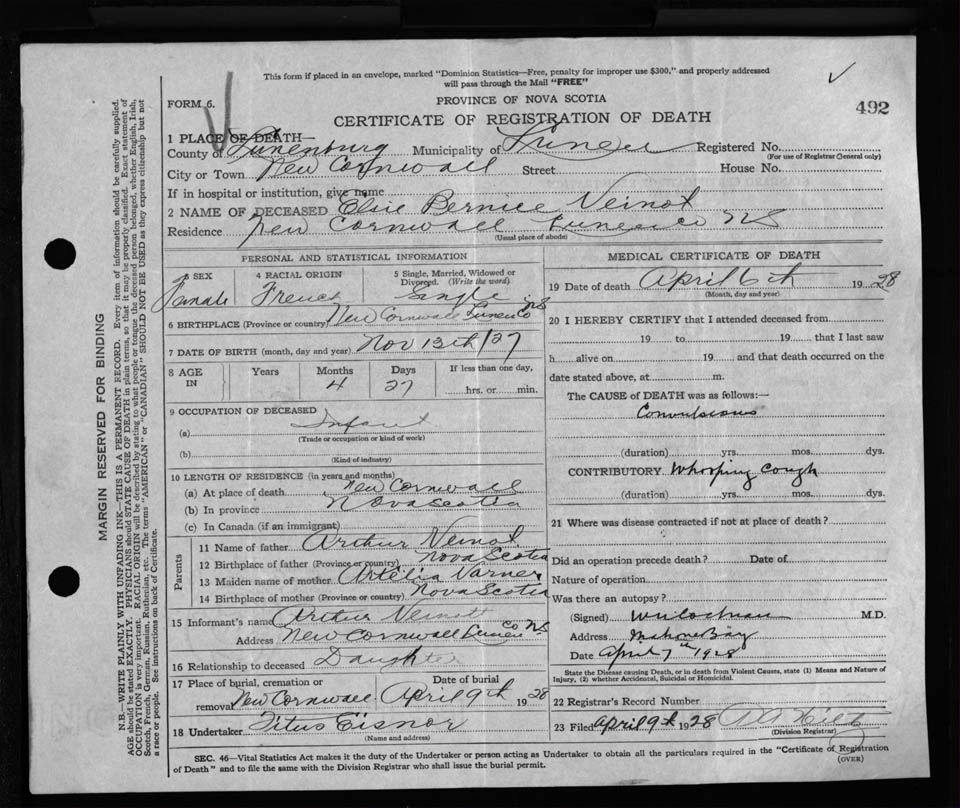 This form if placed in an envelope, marked "Dominion Statistics—Free, penalty for improper use $300," and properly addressed
will pass through the Mail "FREE"
FORM 6.
PROVINCE OF NOVA SCOTIA
492
CERTIFICATE OF REGISTRATION OF DEATH
1 PLACE OF DEATH—
County of Lunenburg Municipality of Registered No.
(For use of Registrar General only)
City or Town New Cornwall Street House No.
If in hospital or institution, give name
2 NAME OF DECEASED Elsie Bernice Veinot
Residence New Cornwall Lunen Co NS
(Usual place of abode)
PERSONAL AND STATISTICAL INFORMATION
3 SEX Female
4 RACIAL ORIGIN French
5 Single, Married, Widowed or Divorced. (Write the word) Single
6 BIRTHPLACE (Province or country) New Cornwall Lunen Co NS
7 DATE OF BIRTH (month, day and year) Nov 13th/27
8 AGE IN Years Months 4 Days 27 If less than one day, hrs. or min.
9 OCCUPATION OF DECEASED
(a) Infant
(Trade or occupation or kind of work)
(b)
(Kind of industry)
10 LENGTH OF RESIDENCE (in years and months)
(a) At place of death New Cornwall
(b) In province Nova Scotia
(c) In Canada (if an immigrant)
Parents
11 Name of father Arthur Veinot
12 Birthplace of father (Province or country) Nova Scotia
13 Maiden name of mother Artelia Varner
14 Birthplace of mother (Province or country) Nova Scotia
15 Informant's name Arthur Veinott
Address New Cornwall Lunen Co NS
16 Relationship to deceased Daughter
17 Place of burial, cremation or removal New Cornwall Date of burial April 9th 1928
18 Undertaker Titus Eisnor
(Name and address)
MEDICAL CERTIFICATE OF DEATH
19 Date of death April 6th 1928
(Month, day and year)
20 I HEREBY CERTIFY that I attended deceased from
19 to 19 that I last saw
h alive on 19 and that death occurred on
date stated above, at m.
The CAUSE of DEATH was as follows:—
Convulsions
(duration) yrs. mos. dys.
CONTRIBUTORY Whooping Cough
(duration) yrs. mos. dys.
21 Where was disease contracted if not at place of death?
Did an operation precede death? Date of
Nature of operation
Was there an autopsy?
(Signed) M.D.
Address Mahone Bay
Date April 7th 1928
State the Disease causing Death, or in death from Violent Causes, state (1) Means and Nature of
Injury, (2) whether Accidental, Suicidal or Homicidal.
22 Registrar's Record Number
23 Filed April 9th 1928
(Division Registrar)
SEC. 46—Vital Statistics Act makes it the duty of the Undertaker or person acting as Undertaker to obtain all the particulars required in the "Certificate of Registration
of Death" and to file the same with the Division Registrar who shall issue the burial permit.
(OVER)
MARGIN RESERVED FOR BINDING
N.B.—WRITE PLAINLY WITH UNFADING INK—THIS IS A PERMANENT RECORD. Every item of information should be carefully supplied.
AGE should be stated EXACTLY. PHYSICIANS should STATE CAUSE OF DEATH in plain terms, so that it may be properly classified. Exact statement of
OCCUPATION is very important. RACIAL ORIGIN will be described by stating to what people or tongue the deceased person belonged, whether English, Irish,
Scotch, French, German, Russian, Ruthenian, etc. The terms "AMERICAN" or "CANADIAN" SHOULD NOT BE USED as they express citizenship but not
a race or people. See instructions on back of Certificate.